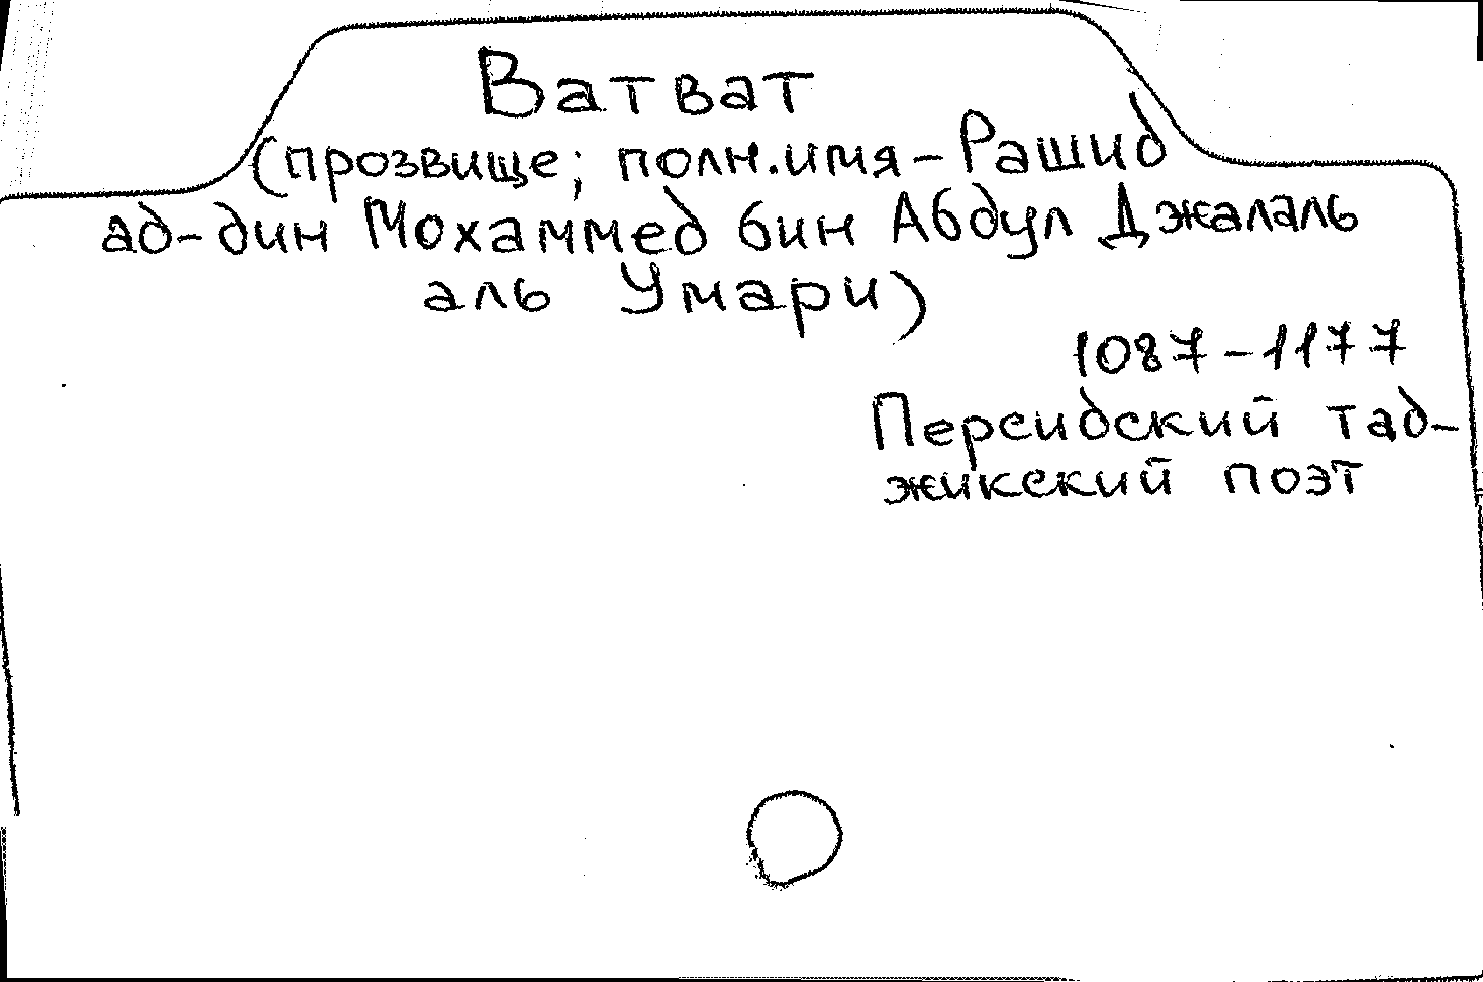 Ватват
(прозвище; полн.имя-Рашид
ад-дин Мохаммед бин Абдул Джалаль
аль Умари)
1087-1177
Персидский тад-
жикский поэт